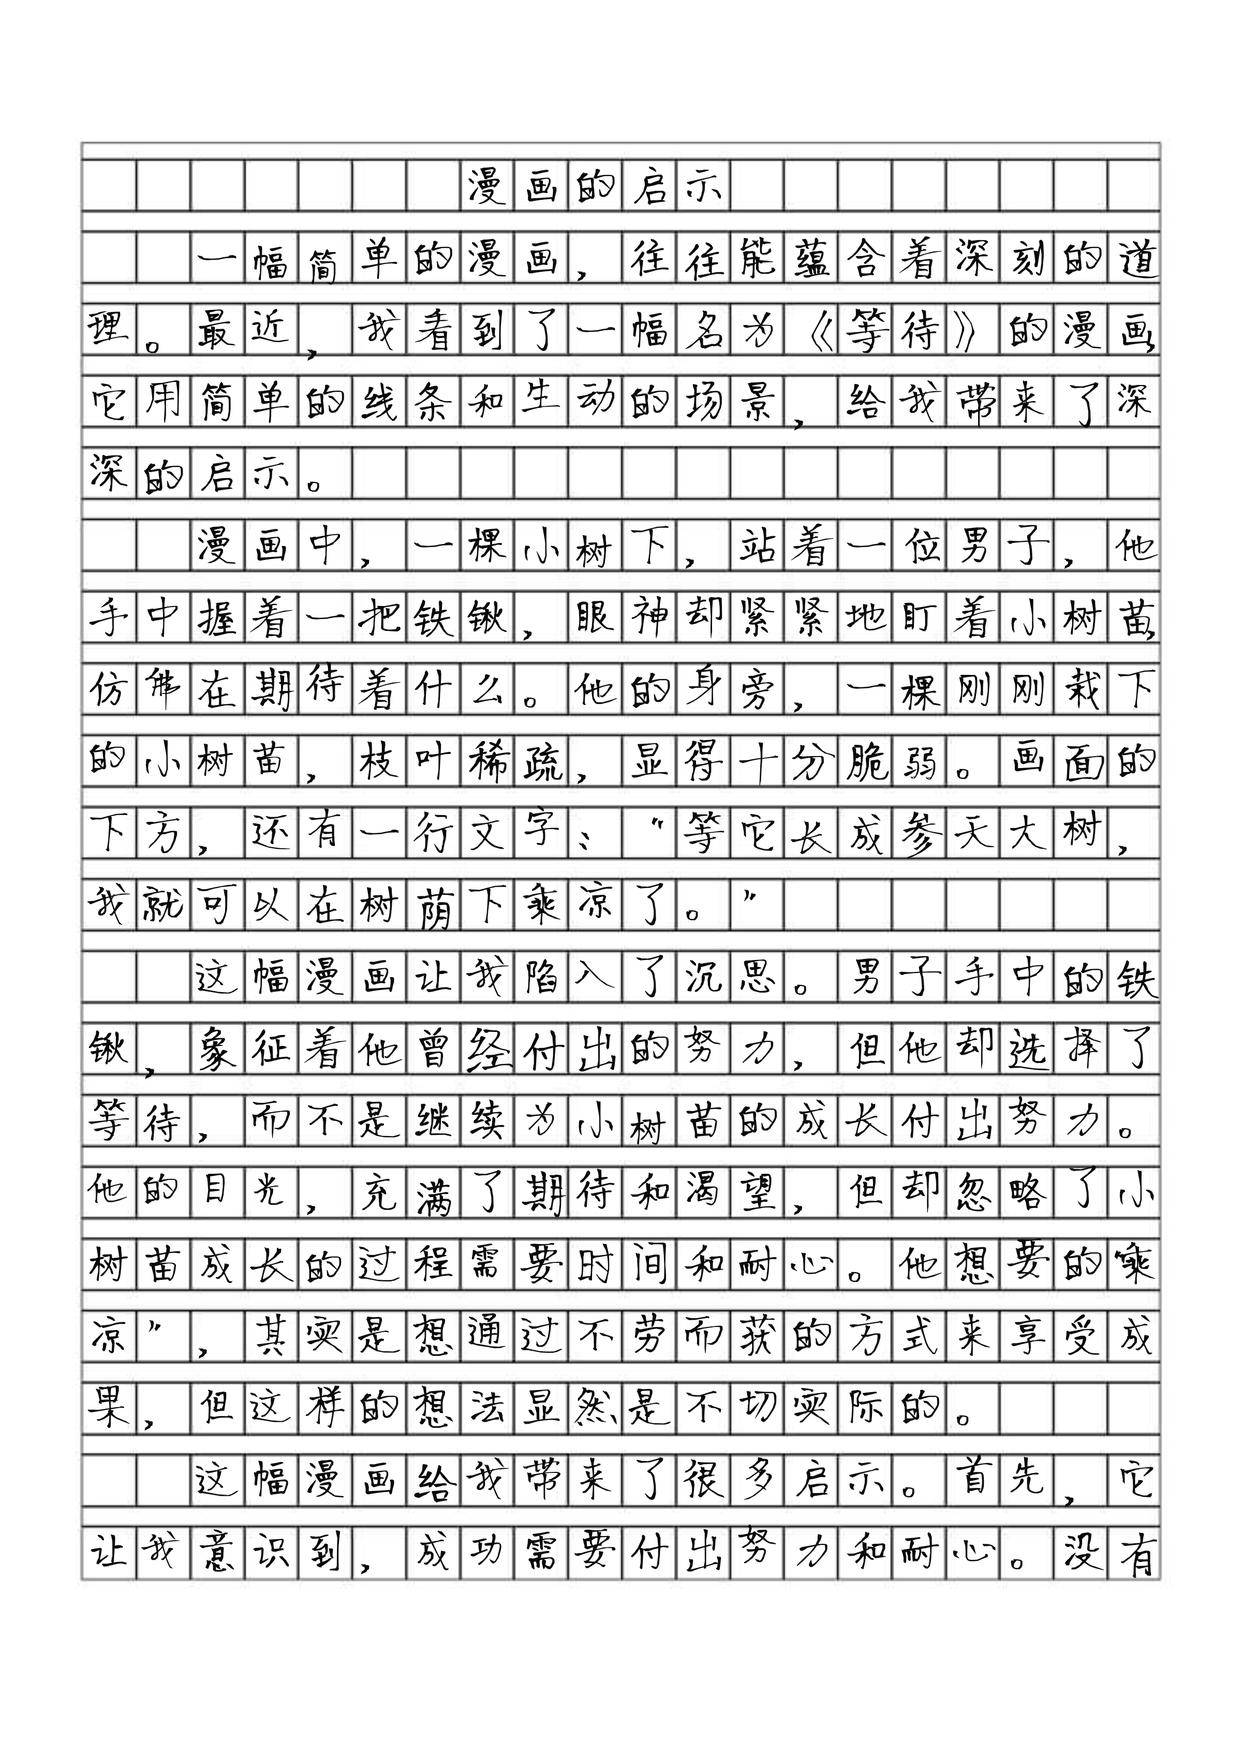 漫画的启示
一幅简单的漫画，往往能蕴含着深刻的道
理。最近，我看到了一幅名为《等待》的漫画，
它用简单的线条和生动的场景，给我带来了深
深的启示。
漫画中，一棵小树下，站着一位男子，他
手中握着一把铁锹，眼神却紧紧地盯着小树苗，
仿佛在期待着什么。他的身旁，一棵刚刚栽下
的小树苗，枝叶稀疏，显得十分脆弱。画面的
下方，还有一行文字：“等它长成参天大树，
我就可以在树荫下乘凉了。”
这幅漫画让我陷入了沉思。男子手中的铁
锹，象征着他曾经付出的努力，但他却选择了
等待，而不是继续为小树苗的成长付出努力。
他的目光，充满了期待和渴望，但却忽略了小
树苗成长的过程需要时间和耐心。他想要的“乘
凉”，其实是想通过不劳而获的方式来享受成
果，但这样的想法显然是不切实际的。
这幅漫画给我带来了很多启示。首先，它
让我意识到，成功需要付出努力和耐心。没有